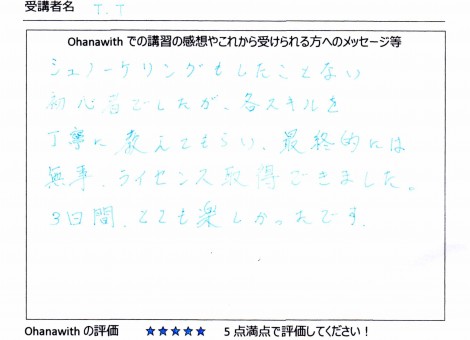 受講者名 T.T
Ohanawith での講習の感想やこれから受けられる方へのメッセージ等
シュノーケリングもしたことない
初心者でしたが、各スキルを
丁寧に教えてもらい、最終的には
無事、ライセンス取得できました。
3日間、とても楽しかったです。
Ohanawith の評価 ★★★★★ 5点満点で評価してください！